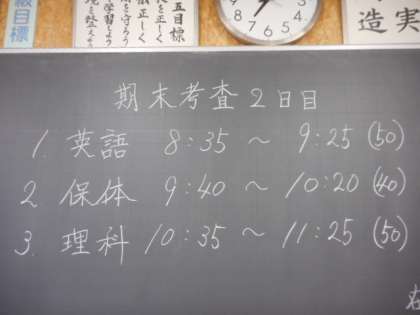 級目標
五目標
造 実
期末考査2日目
1. 英語 8:35 〜 9:25 (50)
2. 保体 9:40 〜 10:20 (40)
3. 理科 10:35 〜 11:25 (50)